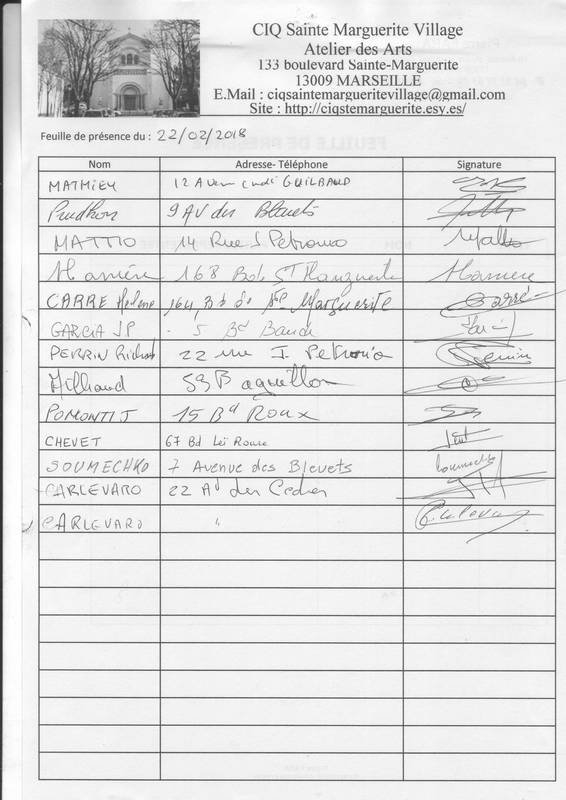 CIQ Sainte Marguerite Village
Atelier des Arts
133 boulevard Sainte-Marguerite
13009 MARSEILLE
E.Mail : ciqsaintemargueritevillage@gmail.com
Site : http://ciqstemarguerite.esy.es/
Feuille de présence du : 22/02/2018
Nom Adresse- Téléphone Signature
MATHIEU 12 Avenue GUILBAUD
Prudhon 9 AV des Bleuets
MATTIO 14 Rue J. Petronio Mattio
168 Bd St Marguerite
CARRE Helene 164, Bd de Ste Marguerite Carré
GARCIA JP 5 Bd
PERRIN Richard 22 rue J. Petronio Perrin
Milhaud 59 Baguillon
POMONTI J 15 Bd Roux
CHEVET 67 Bd Lei Roure
SOUMECHKO 7 Avenue des Bleuets
CARLEVARO 22 Av des Cedres
CARLEVARO "